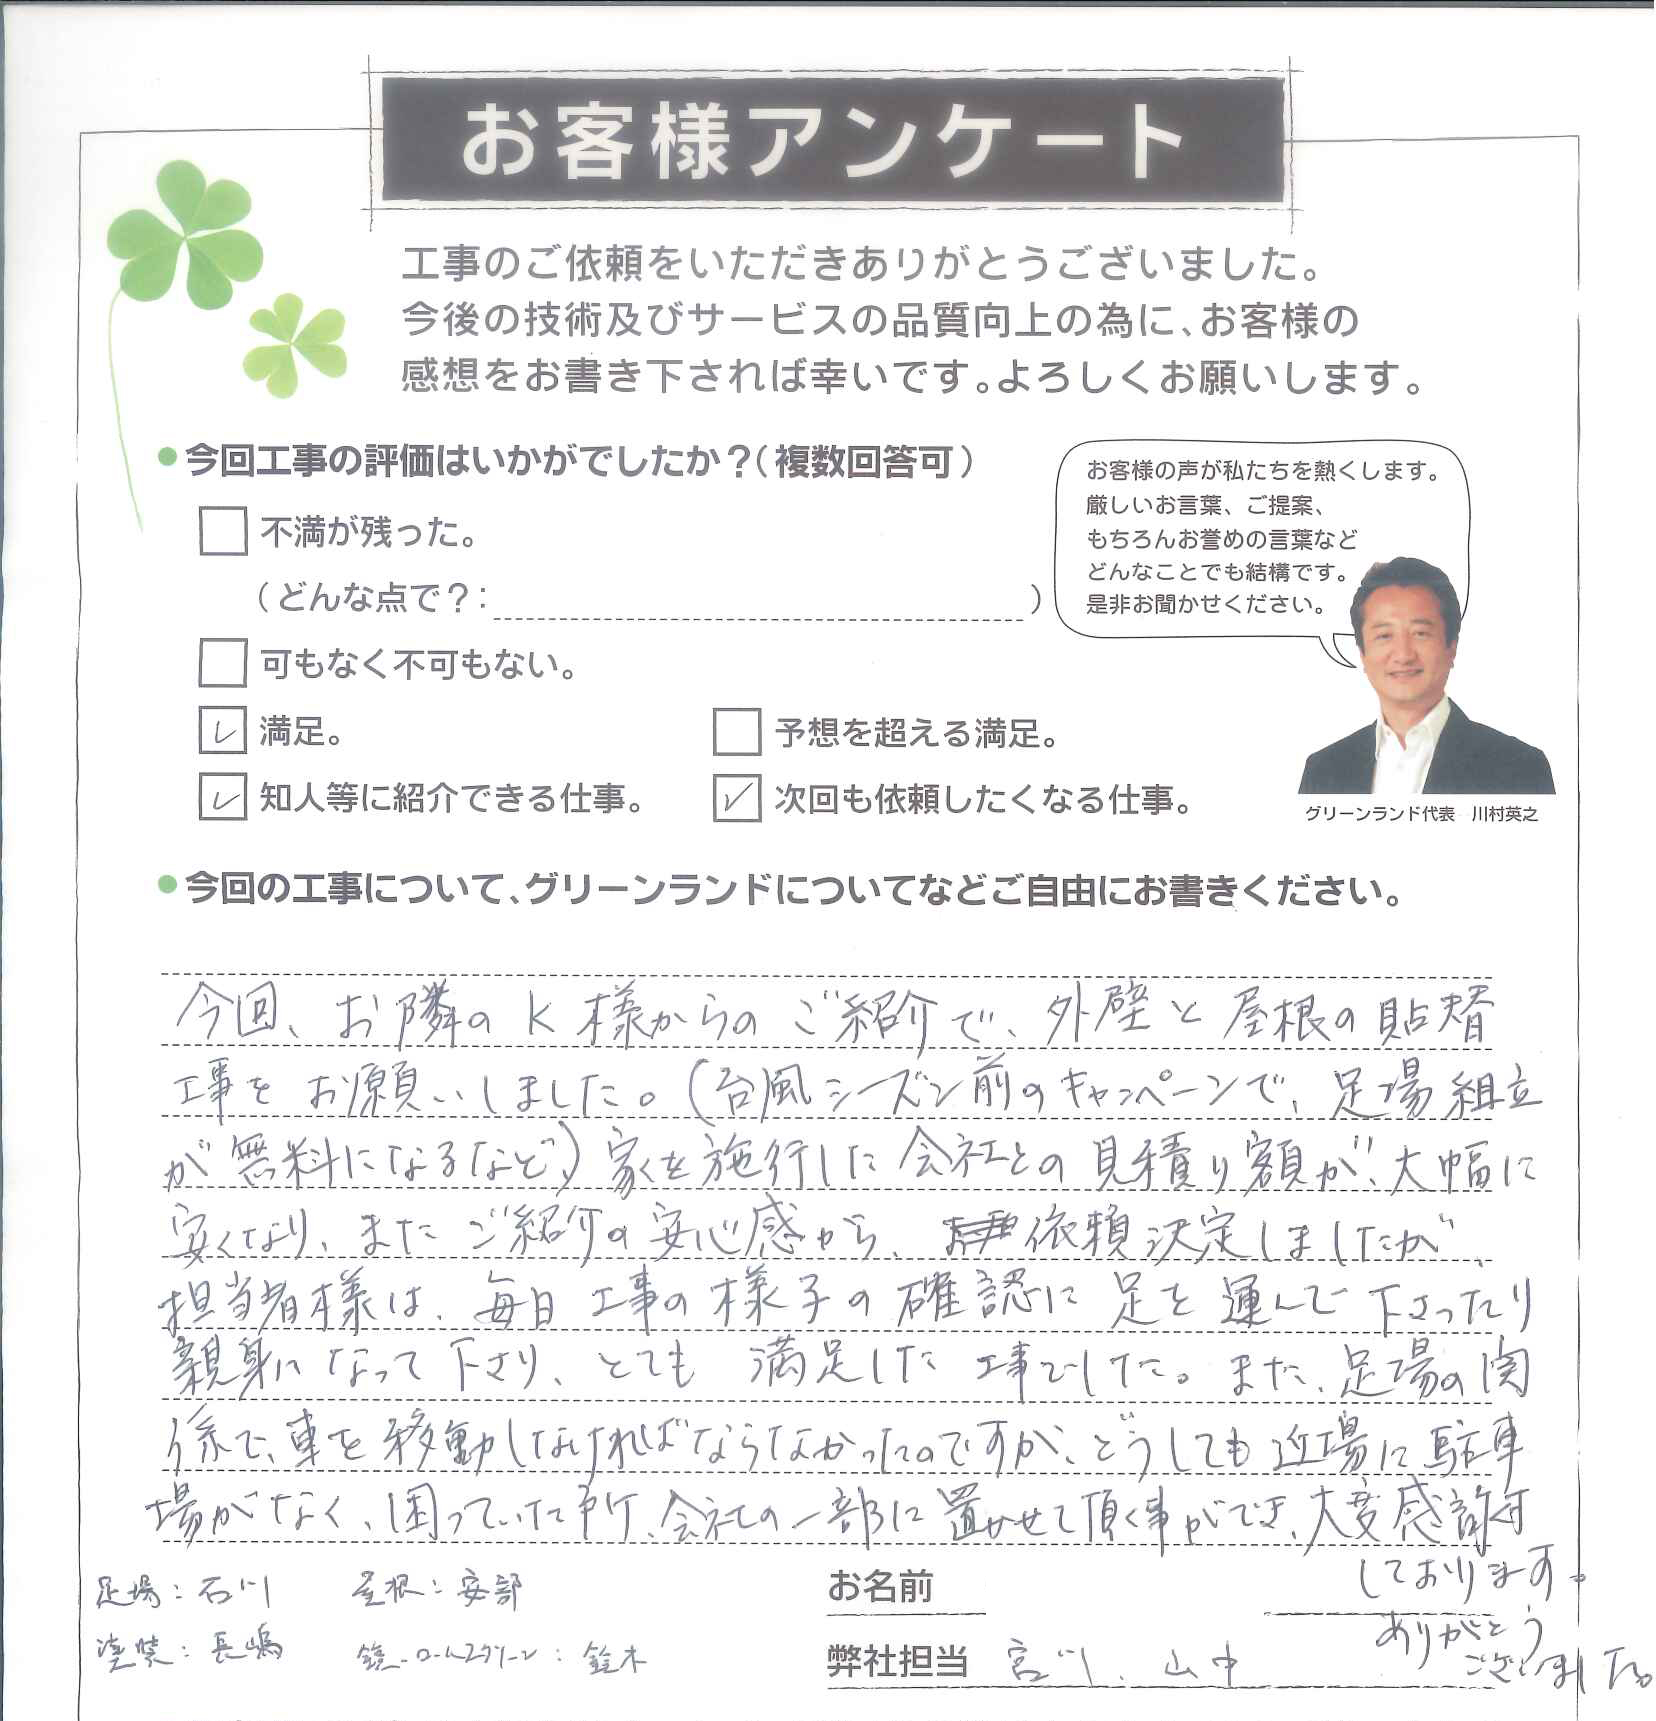 お客様アンケート
工事のご依頼をいただきありがとうございました。
今後の技術及びサービスの品質向上の為に、お客様の
感想をお書き下されば幸いです。よろしくお願いします。
●今回工事の評価はいかがでしたか?(複数回答可)
不満が残った。
(どんな点で?: )
可もなく不可もない。
満足。
予想を超える満足。
知人等に紹介できる仕事。
次回も依頼したくなる仕事。
お客様の声が私たちを熱くします。
厳しいお言葉、ご提案、
もちろんお誉めの言葉など
どんなことでも結構です。
是非お聞かせください。
グリーンランド代表 川村英之
●今回の工事について、グリーンランドについてなどご自由にお書きください。
今回、お隣のK様からのご紹介で、外壁と屋根の貼替
工事をお願いしました。(台風シーズン前のキャンペーンで、足場組立
が無料になるなど)家を施行した会社との見積り額が、大幅に
安くなり、またご紹介の安心感から、依頼決定しましたが、
担当者様は、毎日工事の様子の確認に足を運んで下さったり
親身になって下さり、とても満足した工事でした。また、足場の関
係で、車を移動しなければならなかったのですが、どうしても近場に駐車
場がなく、困っていた所、会社の一部に置かせて頂く事ができ、大変感謝
しております。
ありがとう
ございました。
足場:石川 屋根:安部
塗装:長嶋 ロームスグリーン:鈴木
お名前
弊社担当 宮川、山中